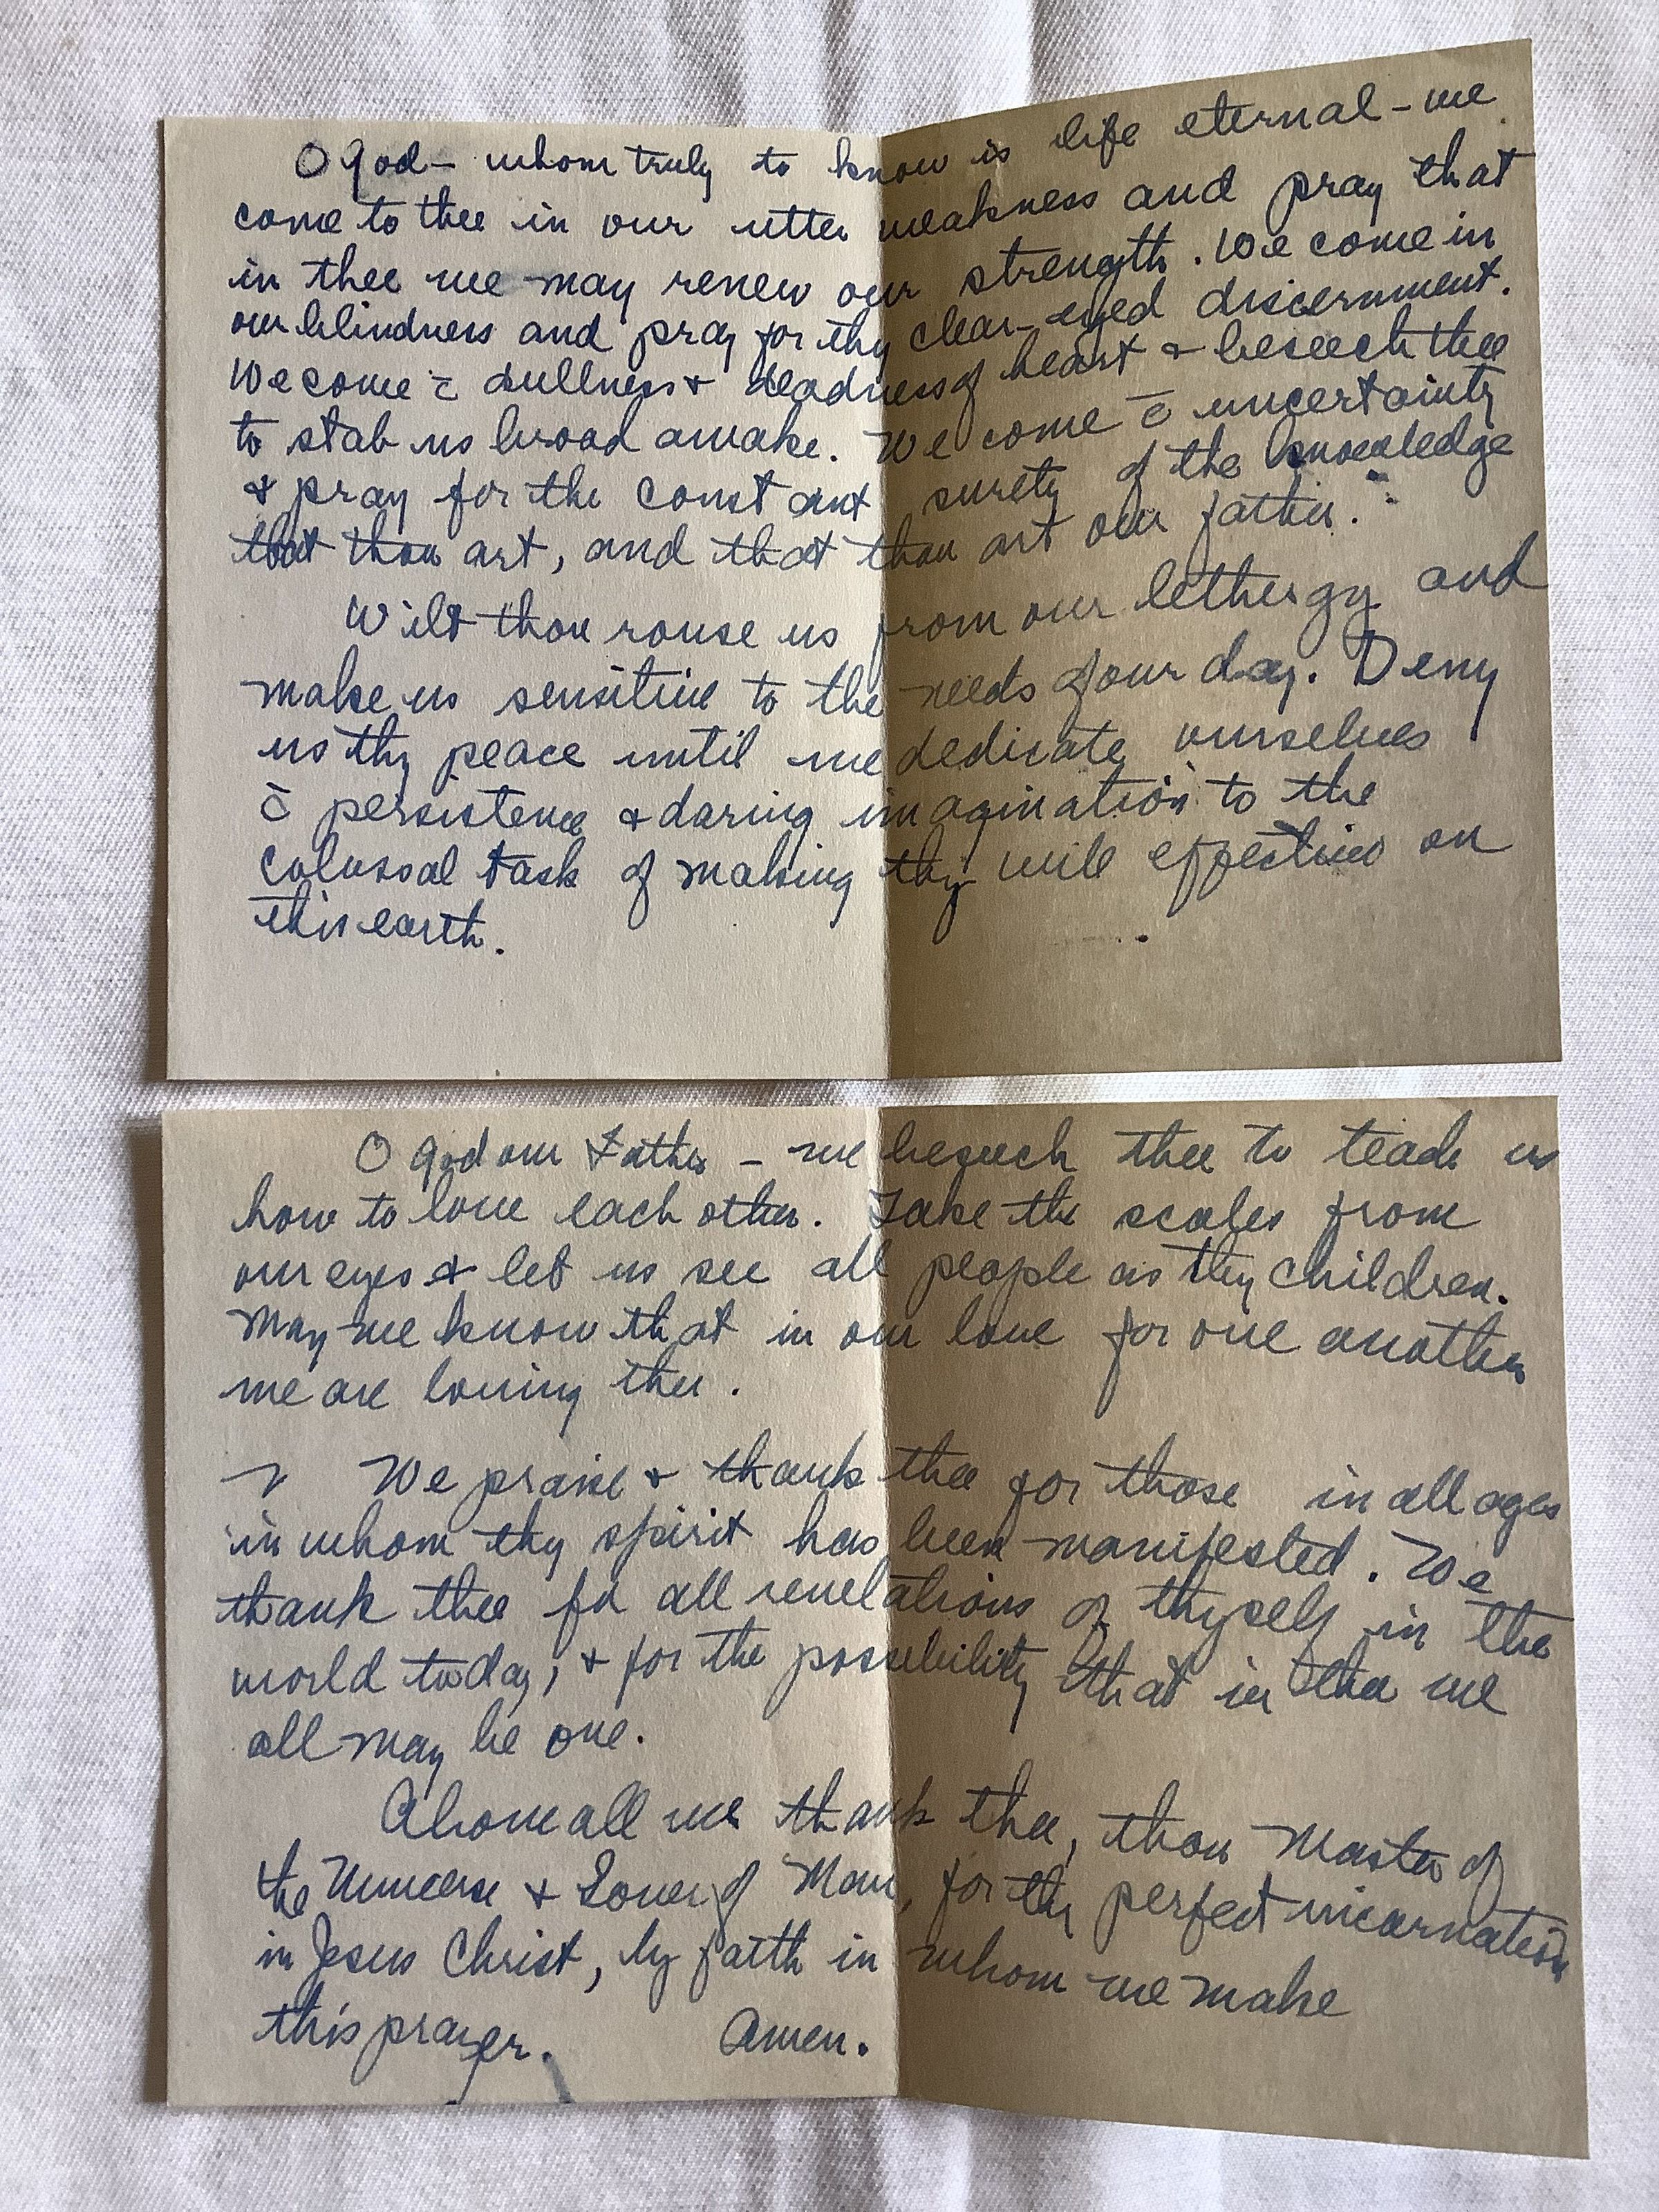 O God — whom truly to know is life eternal — we
come to thee in our utter weakness and pray that
in thee we may renew our strength. We come in
our blindness and pray for thy clear-eyed discernment.
We come c̄ dullness & deadness of heart & beseech thee
to stab us broad awake. We come c̄ uncertainty
& pray for the constant surety of the knowledge
that thou art, and that thou art our father.
Wilt thou rouse us from our lethergy and
make us sensitive to the needs of our day. Deny
us thy peace until we dedicate ourselves
c̄ persistence & daring imagination to the
colossal task of making thy will effective on
this earth.
O God our Father — we beseech thee to teach us
how to love each other. Take the scales from
our eyes & let us see all people as thy children.
May we know that in our love for one another
we are loving thee.
We praise & thank thee for those in all ages
in whom thy spirit has been manifested. We
thank thee for all revelations of thyself in the
world today, & for the possibility that in thee we
all may be one.
Above all we thank thee, thou Master of
the Universe & Lover of Man, for thy perfect incarnation
in Jesus Christ, by faith in whom we make
this prayer. Amen.